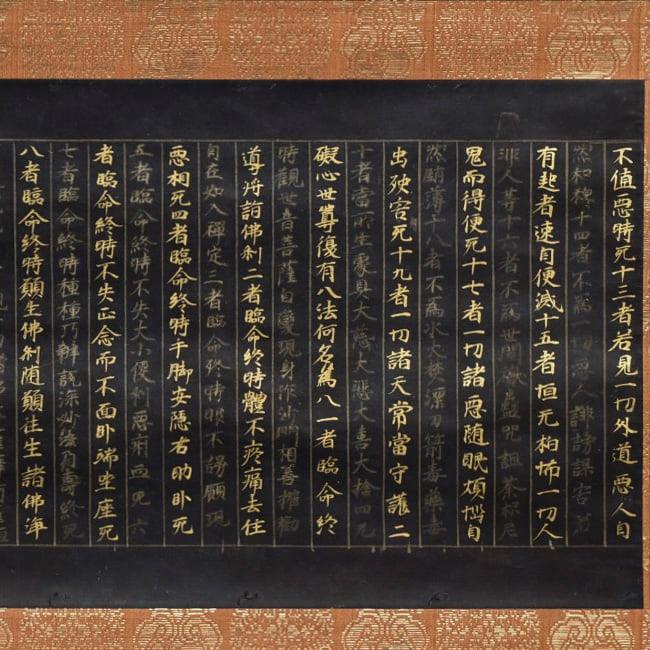 不值惡時死十三者若見一切外道惡人自
然和穆十四者不爲一切惡人誹謗謀害若
有起者速自便滅十五者恒无相怖一切人
非人等十六者不爲世間蠱呪詛茶枳尼
鬼而得便死十七者一切諸惡随眠煩惱自
然薄十八者不爲水火焚漂刀箭毒藥毒
出殃害死十九者一切諸天常當守護二
十者當所生處具大慈大悲大喜大捨四无
礙心世尊復有八法何名爲八一者臨命終
時觀世音菩薩自變現身作沙門相善權勸
導將詣佛刹二者臨命終時體不疼痛去住
自在如入禪定三者臨命終時眼不謾顧現
惡相死四者臨命終時手脚安隱右脇卧死
五者臨命終時不失大小便利惡痢血死六
者臨命終時不失正念而不面卧端坐座死
七者臨命終時種種巧辯説深妙法乃壽終死
八者臨命終時願生佛刹随願往生諸佛淨